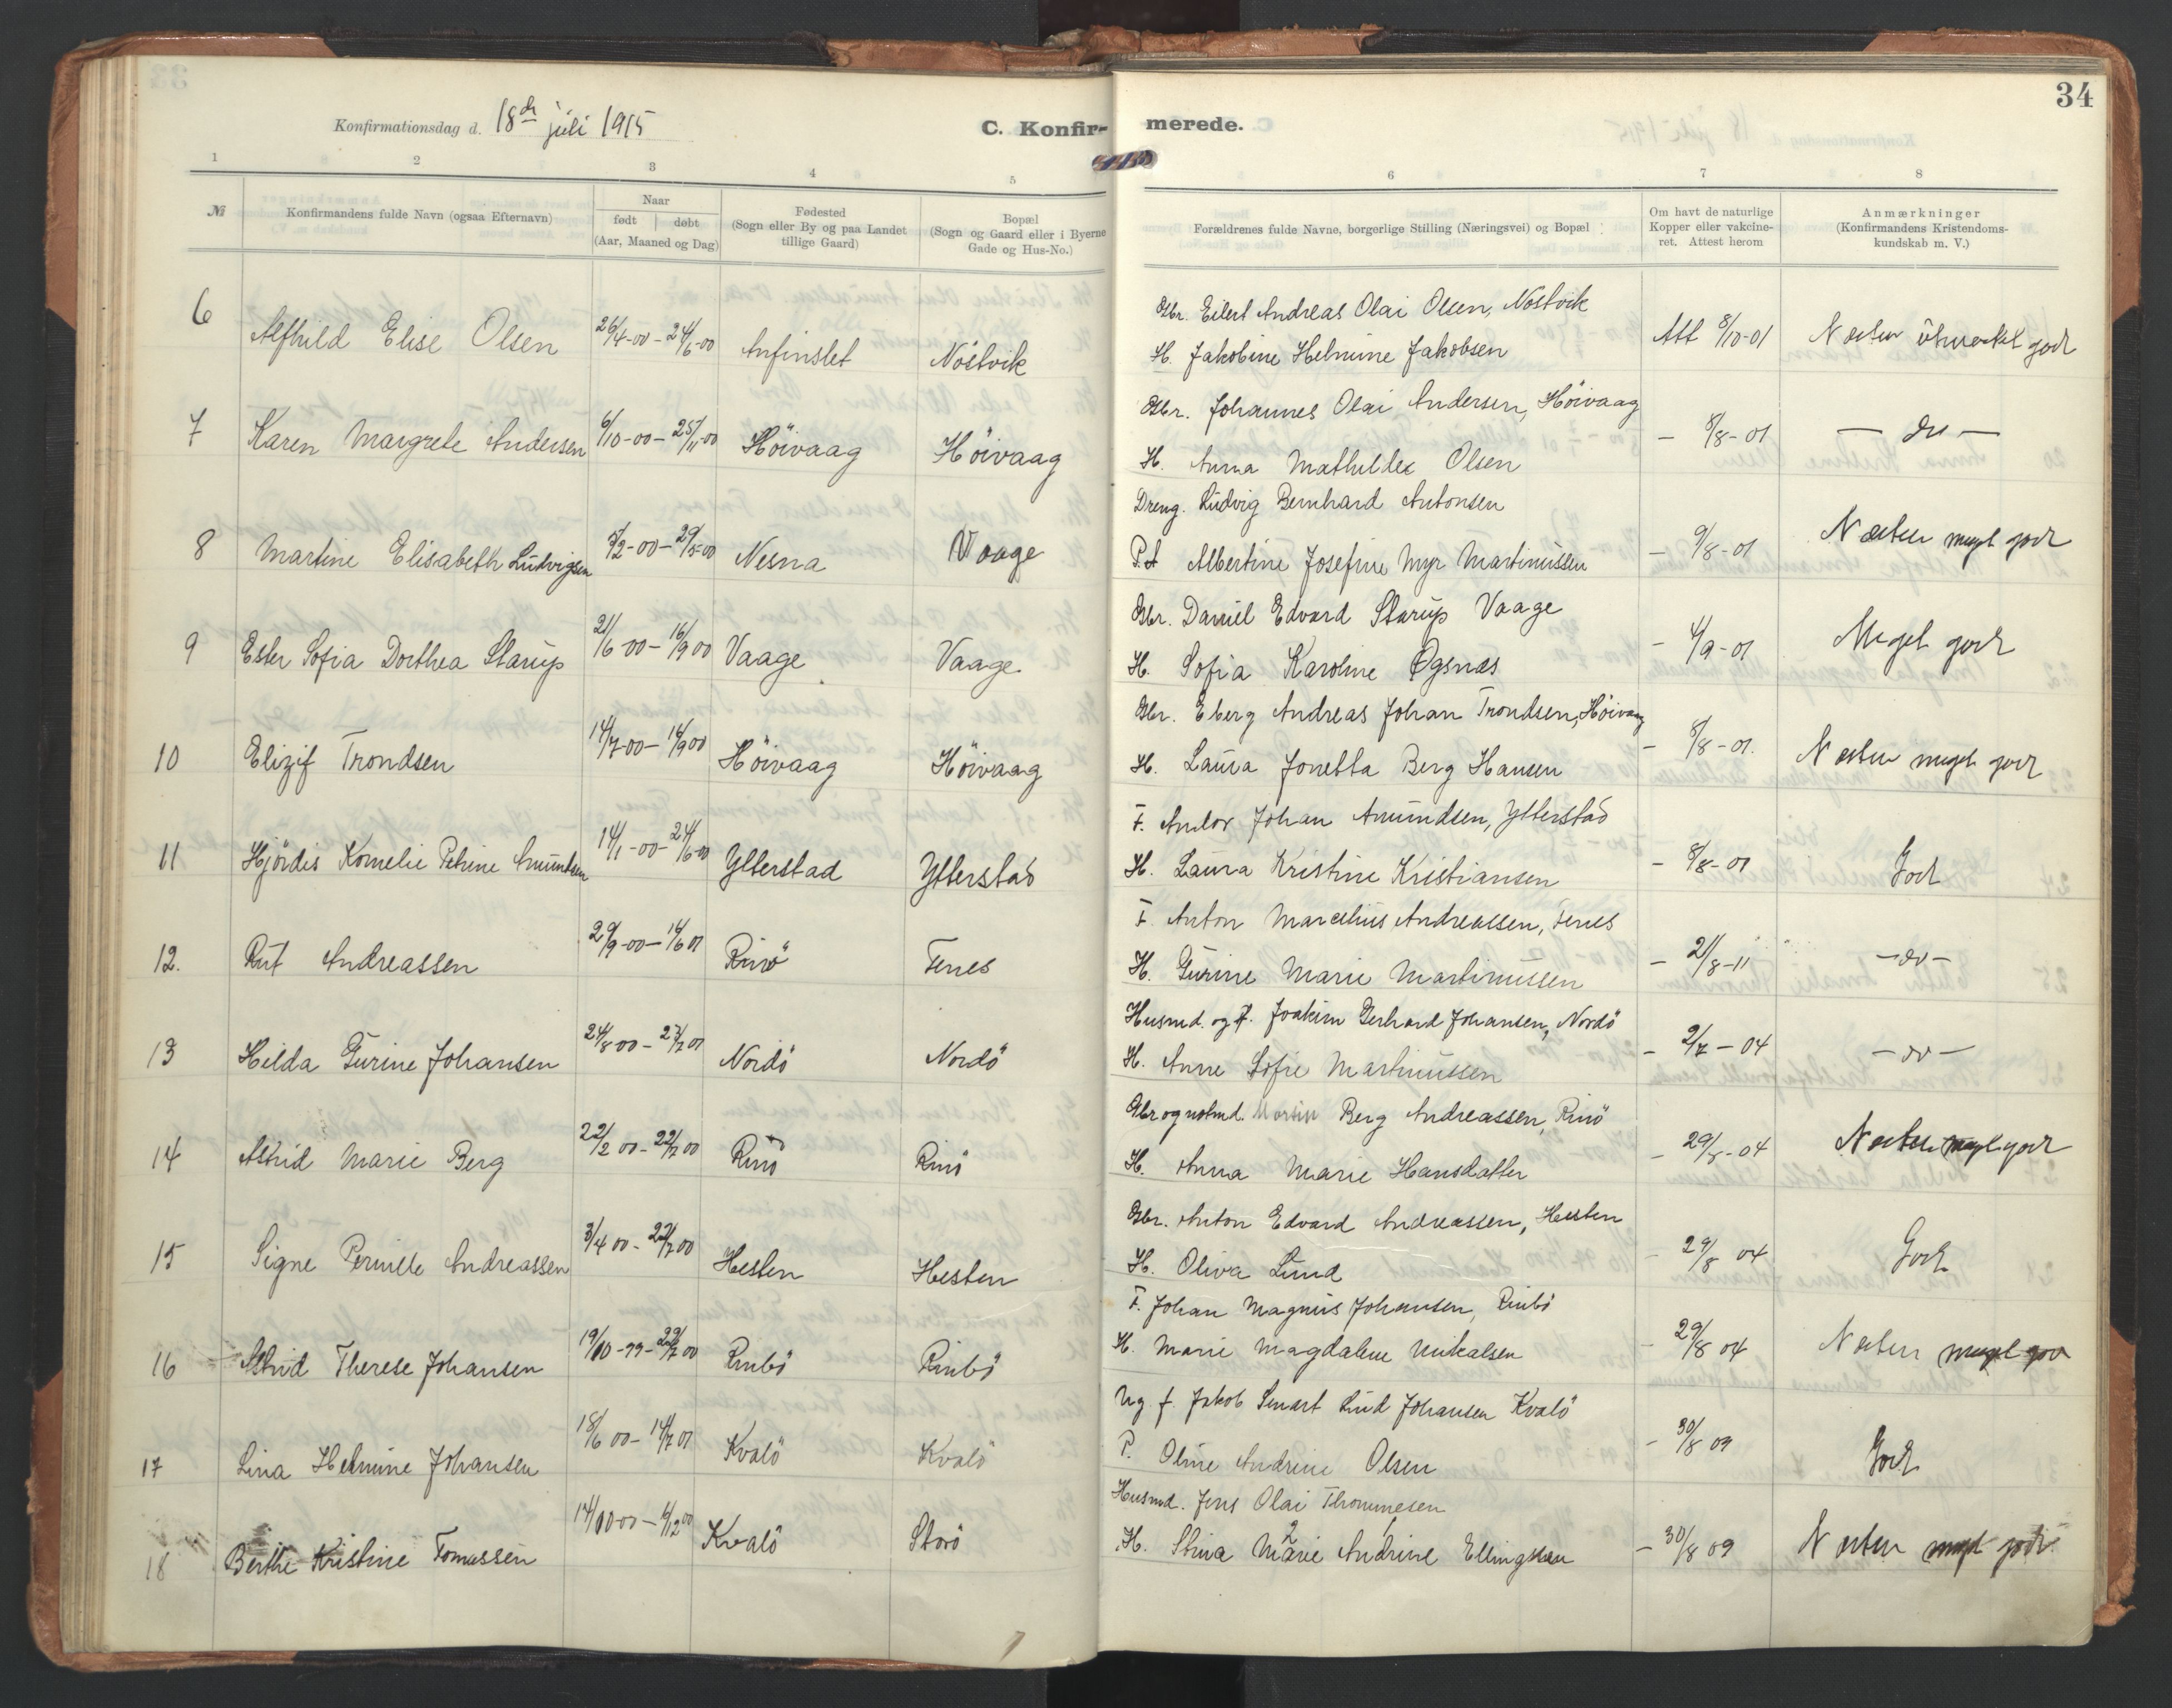 34
Konfirmationsdag d. 18de juli 1915
C. Konfir-
merede.
1 2 3 4 5 6 7 8
№
Konfirmandens fulde Navn (ogsaa Efternavn)
Naar
født | døbt
(Aar, Maaned og Dag)
Fødested
(Sogn eller By og paa Landet
tillige Gaard)
Bopæl
(Sogn og Gaard eller i Byerne
Gade og Hus-No.)
Forældrenes fulde Navne, borgerlige Stilling (Næringsvei) og Bopæl
Om havt de naturlige
Kopper eller vakcine-
ret. Attest herom
Anmærkninger
(Konfirmandens Kristendoms-
kundskab m. V.)
Gbr. Eilert Andreas Olai Olsen, Nøstvik
6 Alfhild Elise Olsen 26/4-00 - 24/6-00 Anfinslet Nöstvik H. Jakobine Helmine Jakobsen Att 8/10-01 Næsten utmerket godt
Gbr. Johannes Olai Andersen, Höivaag
7 Karen Margrete Andersen 6/10-00 - 25/11-00 Höivaag Höivaag H. Anna Mathilde Olsen - 8/8-01 - do -
Dreng. Ludvig Bernhard Antonsen
8 Martine Elisabeth Ludvigsen 5/2-00 - 29/5-00 Nesna Vaage P. Albertine Josefine Myr Martinussen - 9/8-01 Næsten meget godt
Gbr. Daniel Edvard Starup Vaage
9 Ester Sofia Dorthea Starup 21/6 00 - 16/9 00 Vaage Vaage. H. Sofia Karoline Øgsnæs - 4/9-01 Meget godt
Gbr. Eberg Andreas Johan Trondsen, Höivaag
10 Elizif Trondsen 14/7-00 - 16/9 00 Höivaag Höivaag H. Laura Jonetta Berg Hansen - 8/8-01. Næsten meget godt
F. Andor Johan Amundsen, Ytterstad
11 Hjördis Kornelie Petrine Amundsen 14/1-00 - 24/6-00 Ytterstad Ytterstad H. Laura Kristine Kristiansen - 8/8-01 Godt
F. Anton Marcelius Andreassen, Fenes
12. Rut Andreassen 29/9-00 - 14/6 01 Rinö Fenes H. Gurine Marie Martinussen - 21/8-11 - do -
Husmd. og F. Joakim Gerhard Johansen, Nordö
13 Hilda Gurine Johansen 24/8 00 - 27/7 01 Nordö Nordö H. Anne Sofie Martinussen - 2/7-04 - do -
Gbr og notmd. Martin Berg Andreassen, Rinö
14 Astrid Marie Berg 22/2 00 - 22/7 00 Rinö Rinö H. Anna Marie Hansdatter - 29/8-04 Næsten meget godt
Gbr. Anton Edvard Andreassen, Hesten
15 Signe Pernille Andreassen 3/4 00 - 22/7 00 Hesten Hesten H. Oliva Lund - 29/8 04 Godt
F. Johan Magnus Johansen, Rinbö
16 Astrid Therese Johansen 19/10-99 - 22/7 00 Rinbö Rinbö H. Marie Magdalene Mikalsen - 29/8 04 Næsten meget god
Ug. f. Jakob Lenart Lind Johansen Kvalö
17 Lina Helmine Johansen 18/6 00 - 14/7 01 Kvalö Kvalö P. Oline Andrine Olsen - 30/8 09 Godt
Husmd. Jens Olai Thommesen
18 Berthe Kristine Tomassen 14/10 00 - 4/12 00 Kvalö Storö H. Stina Marie Andrine Ellingsen - 30/8 09 Næsten meget godt